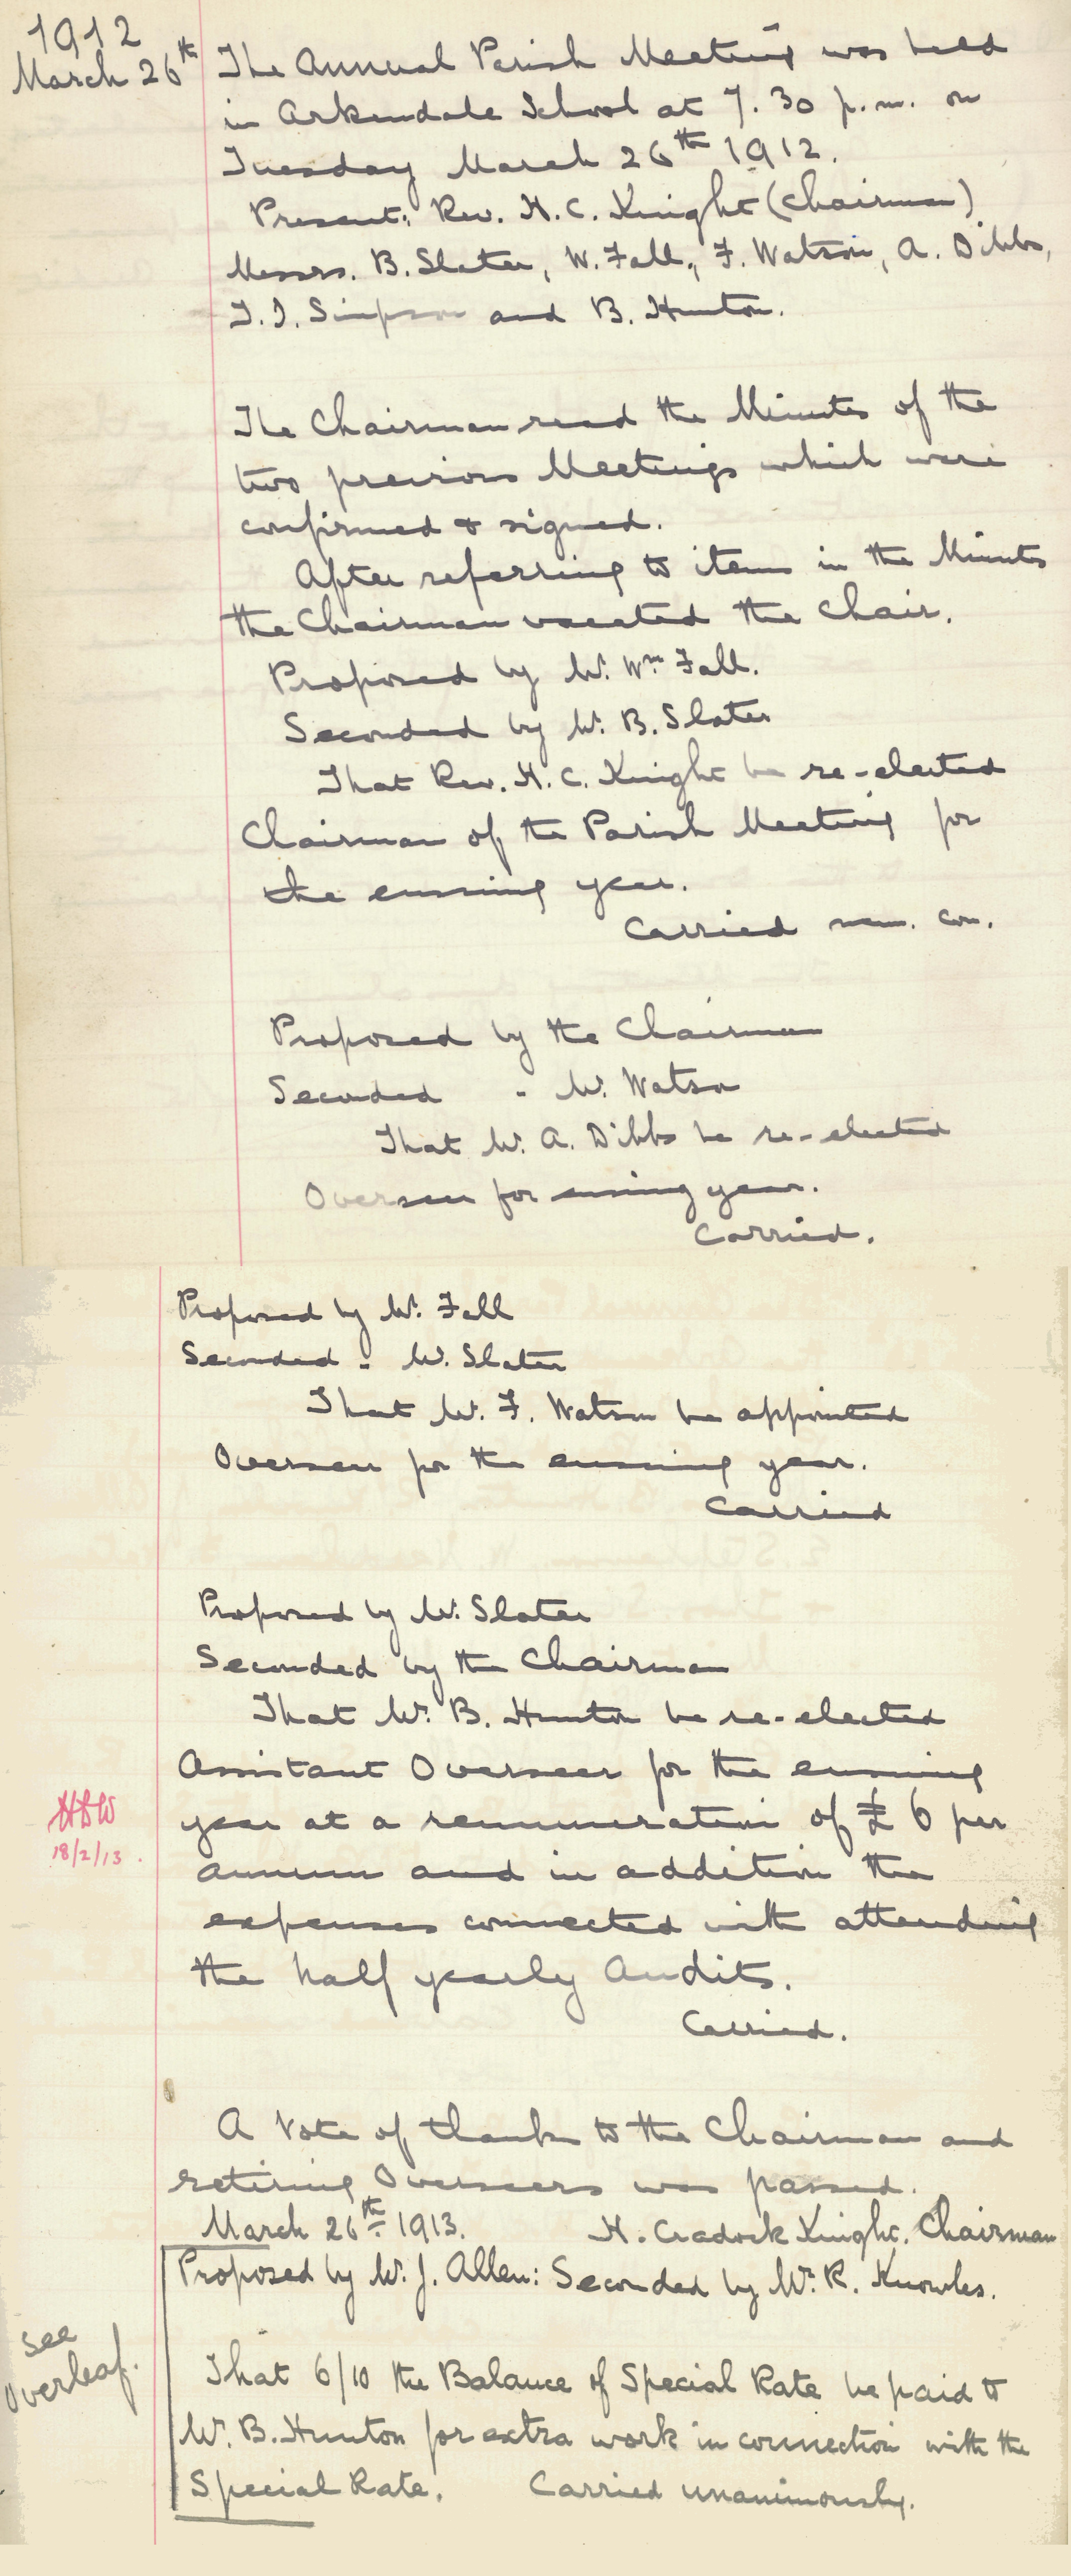 1912
March 26th
The Annual Parish Meeting was held
in Arkendale School at 7.30 p.m. on
Tuesday March 26th 1912.
Present: Rev. H. C. Knight (Chairman)
Messrs. B. Slater, W. Fall, F. Watson, A. Dibbs,
T. I. Simpson and B. Hunton.
The Chairman read the Minutes of the
two previous Meetings which were
confirmed & signed.
After referring to items in the Minutes
the Chairman vacated the Chair.
Proposed by Mr. Wm Fall.
Seconded by Mr. B. Slater
That Rev. H. C. Knight be re-elected
Chairman of the Parish Meeting for
the ensuing year.
Carried nem. con.
Proposed by the Chairman
Seconded " Mr. Watson
That Mr. A. Dibbs be re-elected
Overseer for ensuing year.
Carried.
Proposed by Mr. Fall
Seconded " Mr. Slater
That Mr. F. Watson be appointed
Overseer for the ensuing year.
Carried
Proposed by Mr. Slater
Seconded by the Chairman
That Mr. B. Hunton be re-elected
Assistant Overseer for the ensuing
year at a remuneration of £6 per
annum and in addition the
expenses connected with attending
the half yearly Audits.
Carried.
18/2/13.
A Vote of thanks to the Chairman and
retiring Overseers was passed.
March 26th 1913. H. Cradock Knight. Chairman
Proposed by Mr. J. Allen: Seconded by Mr. R. Knowles.
see
overleaf.
That 6/10 the Balance of Special Rate be paid to
Mr. B. Hunton for extra work in connection with the
Special Rate. Carried unanimously.